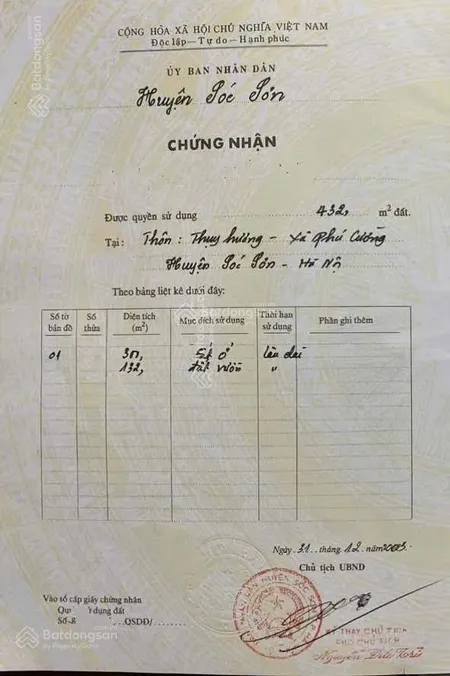 CỘNG HÒA XÃ HỘI CHỦ NGHĨA VIỆT NAM
Độc lập—Tự do—Hạnh phúc
ỦY BAN NHÂN DÂN
Huyện Sóc Sơn
CHỨNG NHẬN
Được quyền sử dụng 432, m² đất.
Tại: Thôn: Thụy hương - Xã Phú Cường
Huyện Sóc Sơn - Hà Nội
Theo bảng liệt kê dưới đây:
Số tờ bản đồ Số thửa Diện tích (m²) Mục đích sử dụng Thời hạn sử dụng Phần ghi thêm
01 ở lâu dài
132, đất vườn "
Ngày 31 tháng 12 năm 2003.
Chủ tịch UBND
Vào sổ cấp giấy chứng nhận
dụng đất
QSDĐ/
KT THAY CHỦ TỊCH
PHÓ CHỦ TỊCH
Batdongsan
by PropertyGuru
Batdongsan
by PropertyGuru